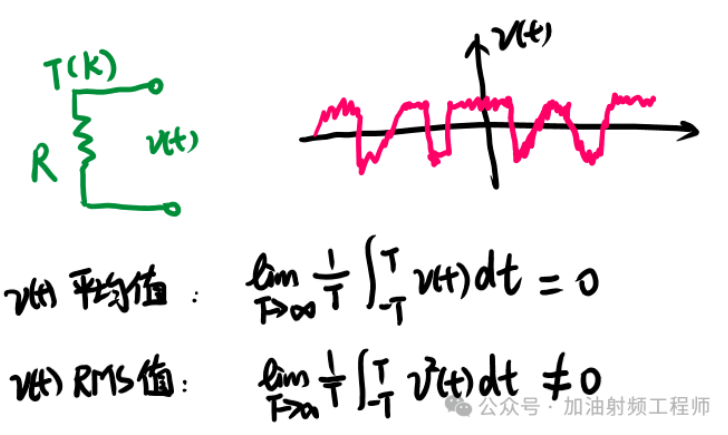 T(K)
R
v(t)
v(t)
v(t) 平均值: lim T→∞ 1/T ∫_{-T}^{T} v(t)dt = 0
v(t) RMS值: lim T→∞ 1/T ∫_{-T}^{T} v²(t)dt ≠ 0
公众号 · 加油射频工程师